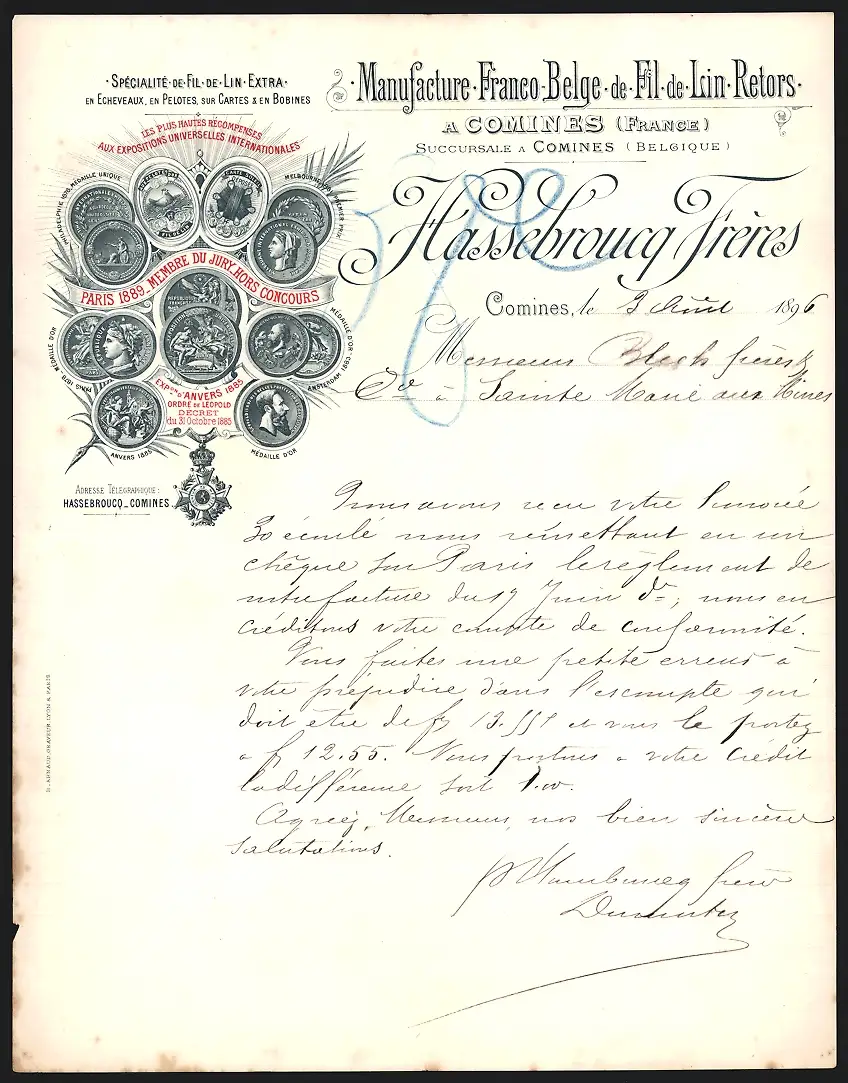 · SPÉCIALITÉ · DE · FIL · DE · LIN · EXTRA ·
EN ECHEVEAUX, EN PELOTES, SUR CARTES & EN BOBINES
LES PLUS HAUTES RÉCOMPENSES
AUX EXPOSITIONS UNIVERSELLES INTERNATIONALES
PHILADELPHIE 1876, MÉDAILLE UNIQUE
MELBOURNE PREMIER PRIX
PARIS 1889_MEMBRE DU JURY, HORS CONCOURS
MÉDAILLE D'OR
PARIS 1878
MÉDAILLE D'OR 1883
AMSTERDAM
EXPON D'ANVERS 1885
ORDRE DE LÉOPOLD
DECRET
du 31 Octobre 1885
ANVERS 1885
MÉDAILLE D'OR
ADRESSE TÉLÉGRAPHIQUE:
HASSEBROUCQ_COMINES
· Manufacture · Franco-Belge · de · Fil · de · Lin · Retors ·
A COMINES (FRANCE)
SUCCURSALE A COMINES (BELGIQUE)
Hassebroucq Frères
Comines, le 3 Août 1896
Messieurs Blech frères &
Cie à Sainte Marie aux Mines
Nous avons reçu votre honorée
30 écoulé nous remettant en un
chèque sur Paris le règlement de
notre facture du 19 Juin dº; nous en
créditons votre compte de conformité.
Vous faites une petite erreur à
votre préjudice dans l'escompte qui
doit être de f 13.55 et vous le portez
à f 12.55. Nous portons à votre crédit
la différence soit 1.00.
Agréez, Messieurs, nos bien sincères
salutations.
p Hassebroucq frères
B. ARNAUD, GRAVEUR LYON & PARIS